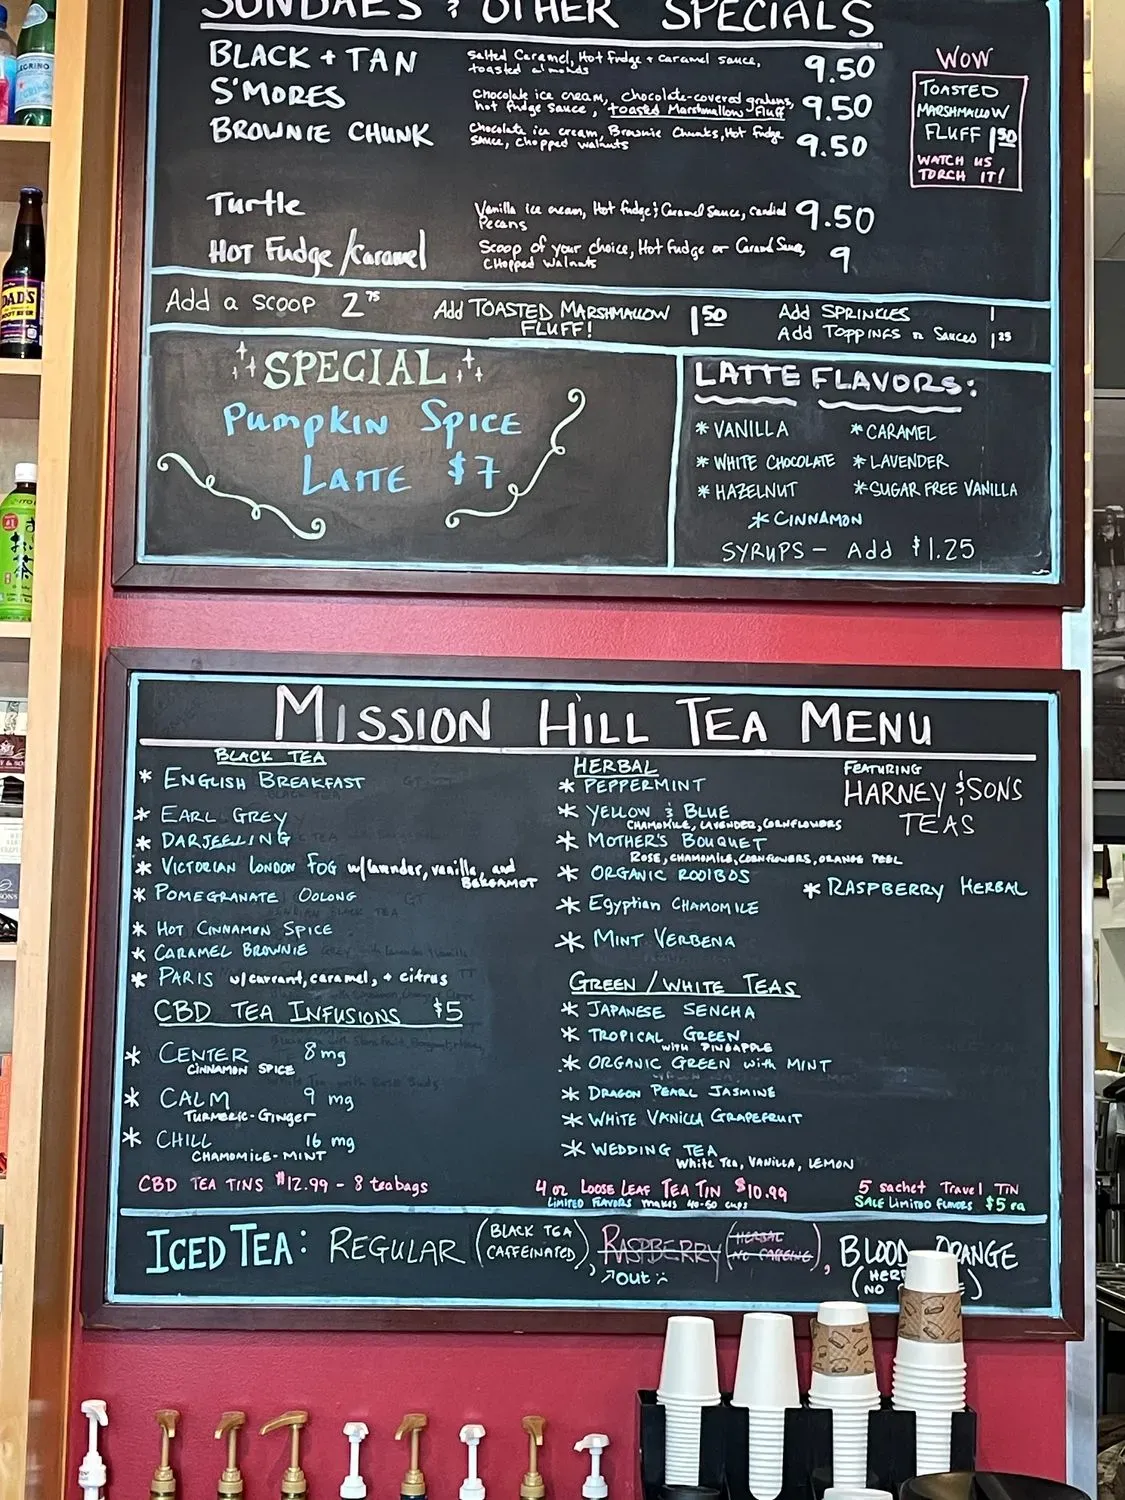 SUNDAES & OTHER SPECIALS
BLACK + TAN
Salted Caramel, Hot Fudge + Caramel sauce,
toasted almonds
9.50
S'MORES
Chocolate ice cream, chocolate-covered grahams,
hot fudge sauce, toasted Marshmallow Fluff
9.50
BROWNIE CHUNK
Chocolate ice cream, Brownie Chunks, Hot fudge
sauce, Chopped walnuts
9.50
Turtle
Vanilla ice cream, Hot fudge & Caramel Sauce, candied
Pecans
9.50
HOT Fudge/Caramel
Scoop of your choice, Hot Fudge or Caramel Sauce,
CHopped Walnuts
9
WOW
TOASTED
MARSHMALLOW
FLUFF 1.50
WATCH US
TORCH IT!
Add a scoop 2.75
Add TOASTED MARSHMALLOW
FLUFF!
1.50
Add SPRINKLES 1
Add TOPPINGS or Sauces 1.25
SPECIAL
Pumpkin Spice
Latte $7
LATTE FLAVORS:
* VANILLA
* CARAMEL
* WHITE CHOCOLATE
* LAVENDER
* HAZELNUT
* SUGAR FREE VANILLA
* CINNAMON
SYRUPS - Add $1.25
GRINO
DAD'S
ROOT BEER
MISSION HILL TEA MENU
BLACK TEA
* ENGLISH BREAKFAST
* EARL GREY
* DARJEELING
* VICTORIAN LONDON FOG w/lavender, vanilla, and
BERGAMOT
* POMEGRANATE OOLONG
* HOT CINNAMON SPICE
* CARAMEL BROWNIE
* PARIS w/currant, caramel, + citrus
CBD TEA INFUSIONS $5
* CENTER 8mg
CINNAMON SPICE
* CALM 9 mg
TURMERIC-GINGER
* CHILL 16 mg
CHAMOMILE-MINT
CBD TEA TINS $12.99 - 8 teabags
HERBAL
* PEPPERMINT
* YELLOW & BLUE
CHAMOMILE, LAVENDER, CORNFLOWERS
* MOTHER'S BOUQUET
ROSE, CHAMOMILE, CORNFLOWERS, ORANGE PEEL
* ORGANIC ROOIBOS
* Egyptian CHAMOMILE
* MINT VERBENA
FEATURING
HARNEY & SONS
TEAS
* RASPBERRY HERBAL
GREEN / WHITE TEAS
* JAPANESE SENCHA
* TROPICAL GREEN
WITH PINEAPPLE
* ORGANIC GREEN with MINT
* DRAGON PEARL JASMINE
* WHITE VANILLA GRAPEFRUIT
* WEDDING TEA
White Tea, VANILLA, LEMON
4 oz LOOSE LEAF TEA TIN $10.99
LIMITED FLAVORS makes 40-50 cups
5 sachet Travel TIN
SALE Limited FLAVORS $5 ea
ICED TEA: REGULAR (BLACK TEA
CAFFEINATED), RASPBERRY (HERBAL
NO CAFFEINE), BLOOD ORANGE
↗out :(